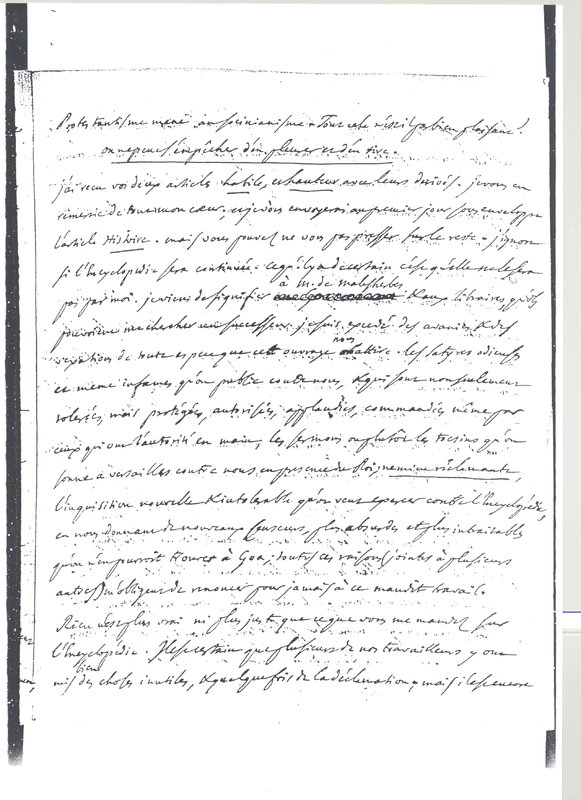 Protestantisme mene au socinianisme. Tout cela n'est il pas bien plaisant?
on ne peut s'empêcher d'en pleurer et d'en rire.
j'ai recu vos deux articles habile, et hauteur avec leurs derivés. je vous en
remercie de tout mon cœur, et je vous envoyerai au premier jour sous enveloppe
l'article Histoire. mais vous pouvez ne vous pas presser sur le reste. j'ignore
si l'Encyclopédie sera continuée. ce qu'il y a de certain c'est qu'elle ne le sera
pas par moi. je viens de signifier à M. de malesherbes & aux libraires, qu'ils
pouvoient me chercher un successeur. je suis excedé des avanies & des
vexations de toute espece que cet ouvrage nous attire. les satyres odieuses
et même infames qu'on publie contre nous, & qui sont non seulement
tolerées, mais protégées, autorisées, applaudies, commandées même par
ceux qui ont l'autorité en main, les sermons ou plutôt les tocsins qu'on
sonne à versailles contre nous en presence du Roi, nemine reclamante,
l'inquisition nouvelle & intolerable qu'on veut exercer contre l'Encyclopédie,
en nous donnant de nouveaux censeurs, plus absurdes et plus intraitables
qu'on n'en pourroit trouver à Goa; toutes ces raisons jointes à plusieurs
autres m'obligent de renoncer pour jamais à ce maudit travail.
Rien n'est plus vrai ni plus juste que ce que vous me mandez sur
l'Encyclopédie. il est certain que plusieurs de nos travailleurs y ont
mis bien des choses inutiles, & quelquefois de la déclamation; mais il est encore